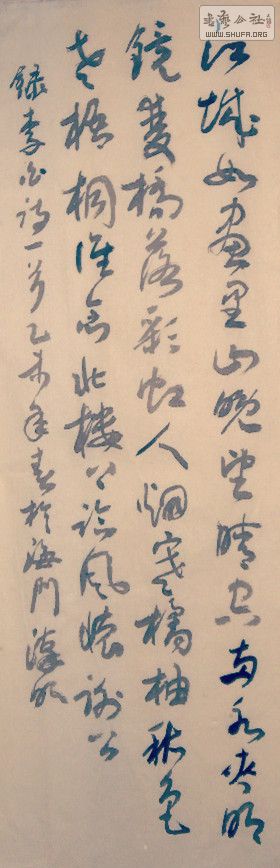 江城如畫里山晚望晴空兩水夾明
鏡雙橋落彩虹人烟寒橘柚秋色
老梧桐誰念北樓上臨風懷謝公
錄李白詩一首乙未年春於海門
WWW.SHUFA.ORG